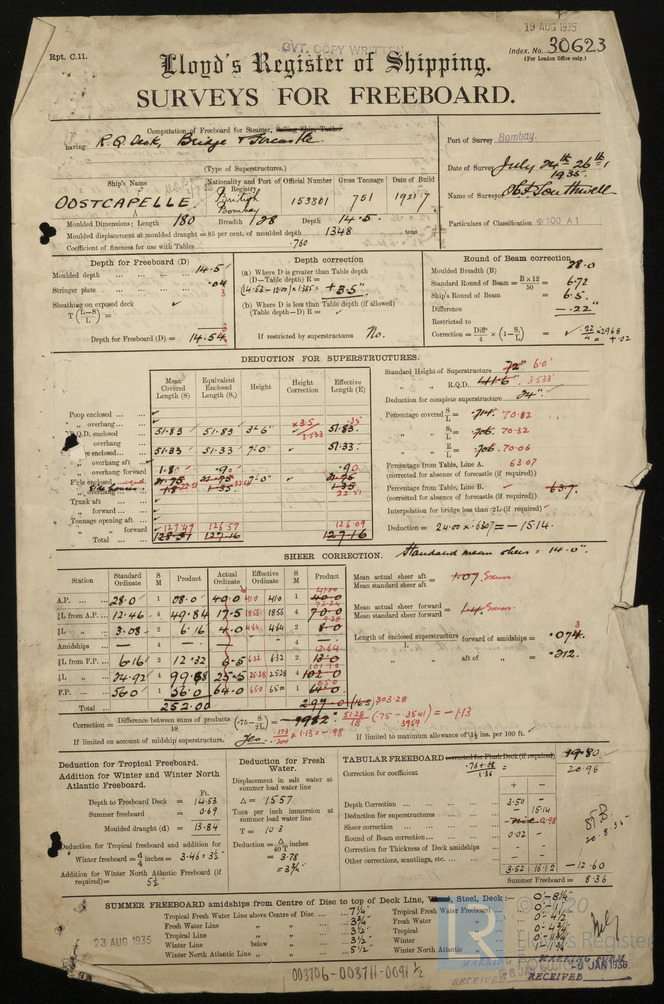 19 AUG 1935
GVT. COPY WRITTEN
Rpt. C.11.
Index. No. 30623
(For London Office only.)
Lloyd's Register of Shipping.
SURVEYS FOR FREEBOARD.
Computation of Freeboard for Steamer, Sailing Ship, Tanker
having R.Q. Deck, Bridge & Forecastle
(Type of Superstructures.)
Port of Survey Bombay.
Date of Survey July 24th 26th 1935.
Name of Surveyor
Particulars of Classification 100 A1
Ship's Name
OOSTCAPELLE
Nationality and Port of Registry
British
Bombay
Official Number
153801
Gross Tonnage
751
Date of Build
1921 7
Moulded Dimensions: Length 180 Breadth 28 Depth 14.5.
Moulded displacement at moulded draught = 85 per cent. of moulded depth 1348 tons
Coefficient of fineness for use with Tables .760
Depth for Freeboard (D)
Moulded depth ... 14.5
Stringer plate ... .04
3
Sheathing on exposed deck
T (L-S/L) =
Depth for Freeboard (D) = 14.54
3
Depth correction
(a) Where D is greater than Table depth
(D—Table depth) R =
(14.53 - 12.00) × 1.385 = + 3.5"
(b) Where D is less than Table depth (if allowed)
(Table depth—D) R =
If restricted by superstructures No.
Round of Beam correction
Moulded Breadth (B) 28.0
Standard Round of Beam = B×12/50 = 6.72
Ship's Round of Beam = 6.5
Difference — .22"
Restricted to
Correction = Diffce/4 × (1-S/L) = .22/4 × .2968 = +.02
DEDUCTION FOR SUPERSTRUCTURES.
Mean Covered Length (S)
Equivalent Enclosed Length (S1)
Height
Height Correction
Effective Length (E)
Poop enclosed
„ overhang
R.Q.D. enclosed 51.83 51.83 3'-6" × 3.5/3.533 .35 51.83
„ overhang
Bridge enclosed 51.83 51.33 7'-0" 51.33
„ overhang aft
„ overhang forward 1.80 .90 .90
F'cle enclosed 21.75 21.75 7'-0" 21.75
22.51 22.51
„ overhang 1.8 1.35 1.35
22.51
Trunk aft
„ forward
Tonnage opening aft
„ „ forward 127.47 126.57 126.09
Total 128.51 127.16 127.16
Standard Height of Superstructure 72" 6.0'
„ „ R.Q.D. 41.6" 3.533'
Deduction for complete superstructure 24".
Percentage covered S/L = .714 70.82
„ S1/L = .706 70.32
„ E/L = .706 70.06
Percentage from Table, Line A. 63.07
(corrected for absence of forecastle (if required))
Percentage from Table, Line B. 63.7.
(corrected for absence of forecastle (if required))
Interpolation for bridge less than ·2L (if required)
Deduction = 24.00 × .6307 = — 15.14.
SHEER CORRECTION.
Standard mean sheer = 14.0".
Station
Standard Ordinate
S M
Product
Actual Ordinate
Effective Ordinate
S M
Product
A.P. 28.0 1 28.0 40.0 41.0 41.0 1 40.0
41.0
⅙L from A.P. 12.46 4 49.84 17.5 18.56 18.56 4 70.0
74.24
⅓L „ 3.08 2 6.16 4.0 4.64 4.64 2 8.0
9.28
Amidships — 4 — — 4 —
⅓L from F.P. 6.16 2 12.32 6.5 6.32 6.32 2 13.0
12.64
⅙L „ 24.92 4 99.68 25.5 25.28 25.28 4 102.0
101.12
F.P. 56.0 1 56.0 64.0 65.0 65.0 1 64.0
65.0
Total 252.00 297.0 303.28
Mean actual sheer aft / Mean standard sheer aft = 1.07 Excess
Mean actual sheer forward / Mean standard sheer forward = 1.4 Excess
Length of enclosed superstructure forward of amidships = .074.
3
L
„ „ aft of „ = .212.
Correction = Difference between sums of products/18 (·75 - S/2L) = 51.28/18 (.75 - .3541) = -1.13
.3959
If limited on account of midship superstructure. Yes. .173/.200 × 1.13 = -.98
If limited to maximum allowance of 1½ ins. per 100 ft.
Deduction for Tropical Freeboard.
Addition for Winter and Winter North Atlantic Freeboard.
Ft.
Depth to Freeboard Deck = 14.53
Summer freeboard = 0.69
Moulded draught (d) = 13.84
Deduction for Tropical freeboard and addition for Winter freeboard = d/4 inches = 3.46 = 3½"
Addition for Winter North Atlantic Freeboard (if required) = 5½
Deduction for Fresh Water.
Displacement in salt water at summer load water line
Δ = 1557
Tons per inch immersion at summer load water line
T = 10.3
Deduction = Δ/40T inches
= 3.78
= 3¾"
TABULAR FREEBOARD corrected for Flush Deck (if required) 19.80
Correction for coefficient .76 + .68 / 1.36 = 20.96
+ —
Depth Correction 3.50 —
Deduction for superstructures — 15.14
Sheer correction — 0.98
Round of Beam correction 0.02 —
Correction for Thickness of Deck amidships — —
Other corrections, scantlings, etc. — —
3.52 16.12 — 12.60
Summer Freeboard = 8.36
20.8.35
SUMMER FREEBOARD amidships from Centre of Disc to top of Deck Line, Wood, Steel, Deck:—
Tropical Fresh Water Line above Centre of Disc 7¼"
Fresh Water Line „ „ 3¾"
Tropical Line „ „ 3½"
Winter Line below „ 3½"
Winter North Atlantic Line „ „ 5½"
Tropical Fresh Water Freeboard
Fresh Water „
Tropical „
Winter „
Winter North Atlantic „
0'-8¼"
23 AUG 1935
003706-003711-0091½
LR
© 2020
Lloyd's Register
Foundation
MARKING FORM
RECEIVED
-6 JAN 1936
RECEIVED